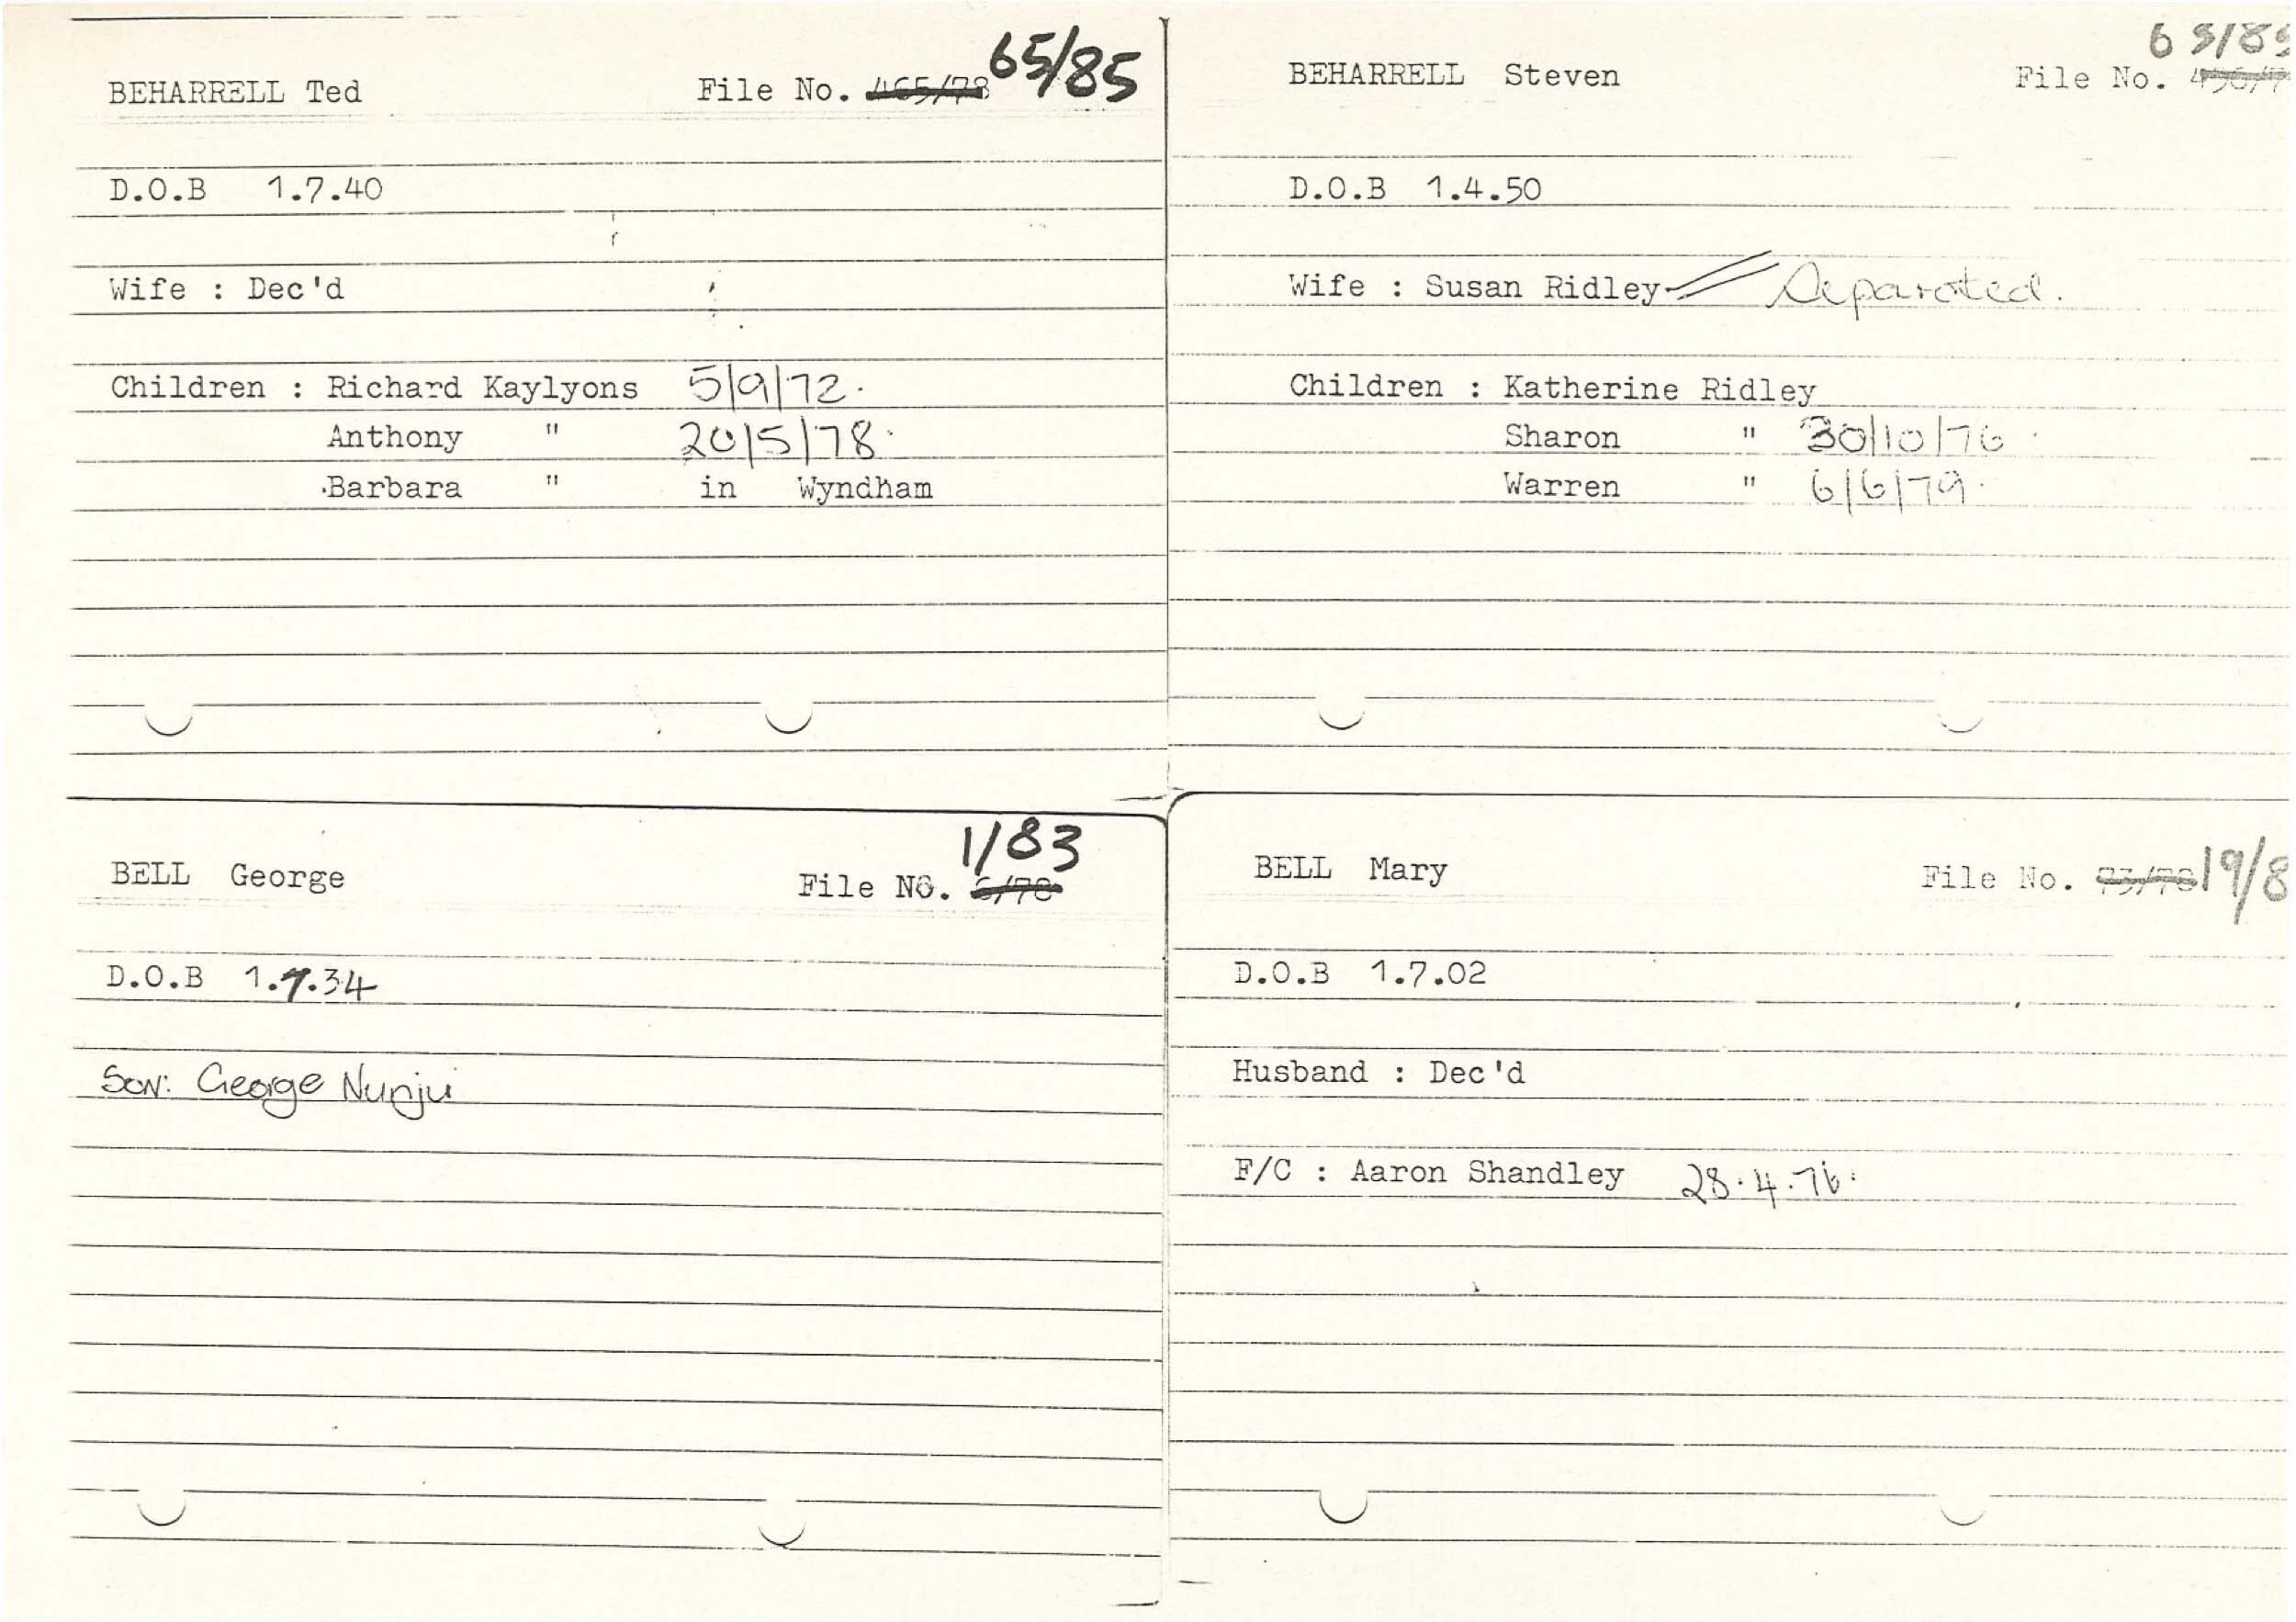 65/85
BEHARRELL Ted File No. 465/78
D.O.B 1.7.40
Wife : Dec'd
Children : Richard Kaylyons 5/9/72.
Anthony " 20/5/78.
Barbara " in Wyndham
63/85
BEHARRELL Steven File No.
D.O.B 1.4.50
Wife : Susan Ridley Separated.
Children : Katherine Ridley
Sharon " 30/10/76
Warren " 6/6/79.
1/83
BELL George File NO.
D.O.B 1.7.34
Son: George Nunju
BELL Mary File No. 73/78 19/8
D.O.B 1.7.02
Husband : Dec'd
F/C : Aaron Shandley 28.4.76.